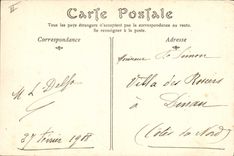 II
Carte Postale
Tous les pays étrangers n'acceptent pas la correspondance au recto.
Se renseigner à la poste.
Correspondance
Adresse
Simon
Villa des Rosiers
à
Dinan
(Côtes du Nord)
27 février 1908